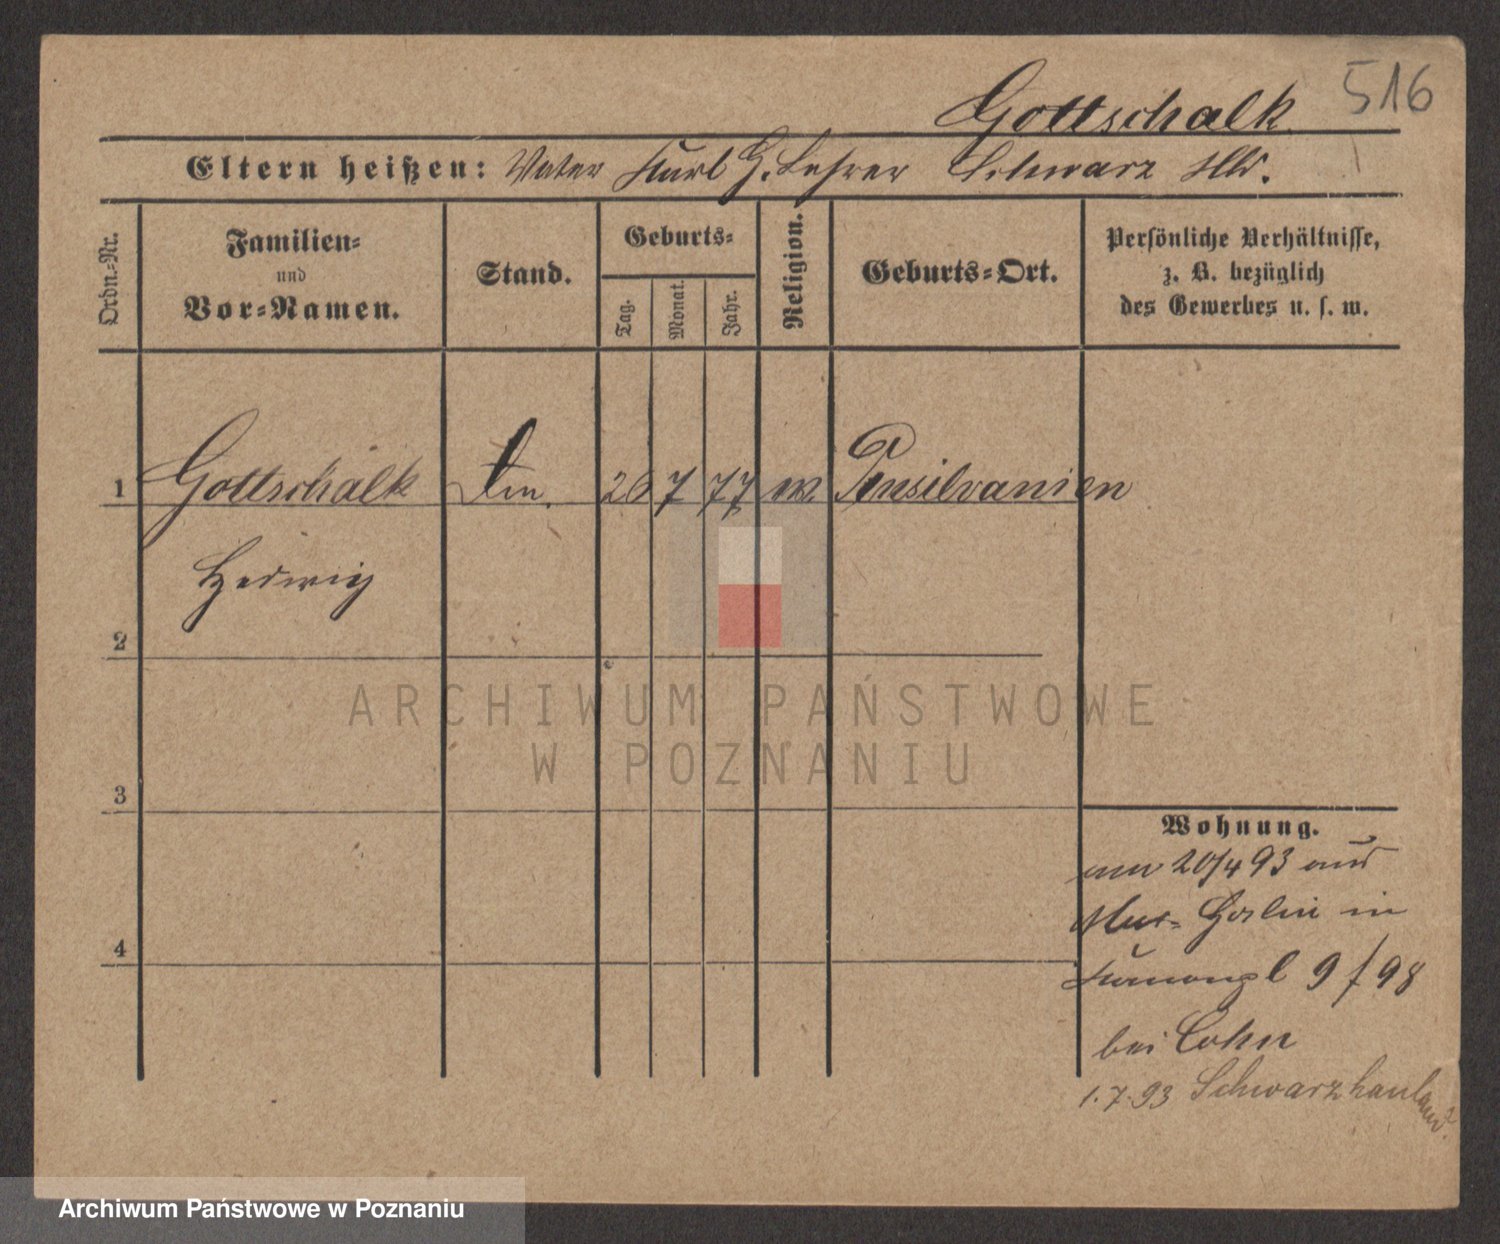 516
Gottschalk
Eltern heißen: Vater Karl G. Lehrer Schwarz
Ordn.-Nr.
Familien-
und
Vor-Namen.
Stand.
Geburts-
Tag.
Monat.
Jahr.
Religion.
Geburts-Ort.
Persönliche Verhältnisse,
z. B. bezüglich
des Gewerbes u. s. w.
1 Gottschalk 26 7 77 Pensilvanien
Hedwig
2
3
4
Wohnung.
am 20/4 93 aus
Goslin in
9 / 98
bei Cohn
1.7.93
ARCHIWUM PAŃSTWOWE
W POZNANIU
Archiwum Państwowe w Poznaniu